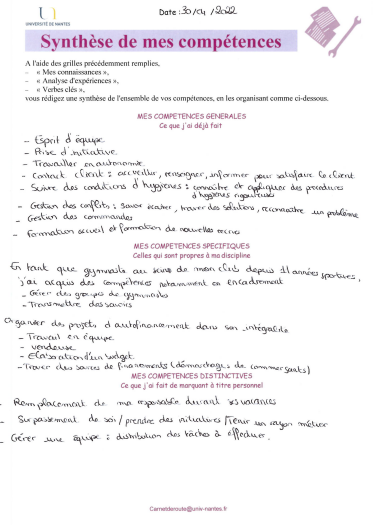 Date : 30/04/2022
UNIVERSITÉ DE NANTES
Synthèse de mes compétences
A l'aide des grilles précédemment remplies,
– « Mes connaissances »,
– « Analyse d'expériences »,
– « Verbes clés »,
vous rédigez une synthèse de l'ensemble de vos compétences, en les organisant comme ci-dessous.
MES COMPETENCES GENERALES
Ce que j'ai déjà fait
- Esprit d'équipe
- Prise d'initiative
- Travailler en autonomie
- Contact client : accueillir, renseigner, informer pour satisfaire le client
- Suivre des conditions d'hygiènes : connaître et appliquer des procédures
d'hygiènes rigoureuses
- Gestion des conflits : savoir écouter, trouver des solutions, reconnaître un problème
- Gestion des commandes
- Formation accueil et formation de nouvelles recrues
MES COMPETENCES SPECIFIQUES
Celles qui sont propres à ma discipline
En tant que gymnaste au sein de mon club depuis 11 années sportives,
j'ai acquis des compétences notamment en encadrement
- Gérer des groupes de gymnastes
- Transmettre des savoirs
Organiser des projets d'autofinancement dans son intégralité
- Travail en équipe
- vendeuse
- Elaboration d'un budget
- Trouver des sources de financements (démarchages de commerçants)
MES COMPETENCES DISTINCTIVES
Ce que j'ai fait de marquant à titre personnel
- Remplacement de ma responsable durant ses vacances
- Surpassement de soi / prendre des initiatives / Tenir un rayon métier
- Gérer une équipe : distribution des tâches à effectuer.
Carnetderoute@univ-nantes.fr